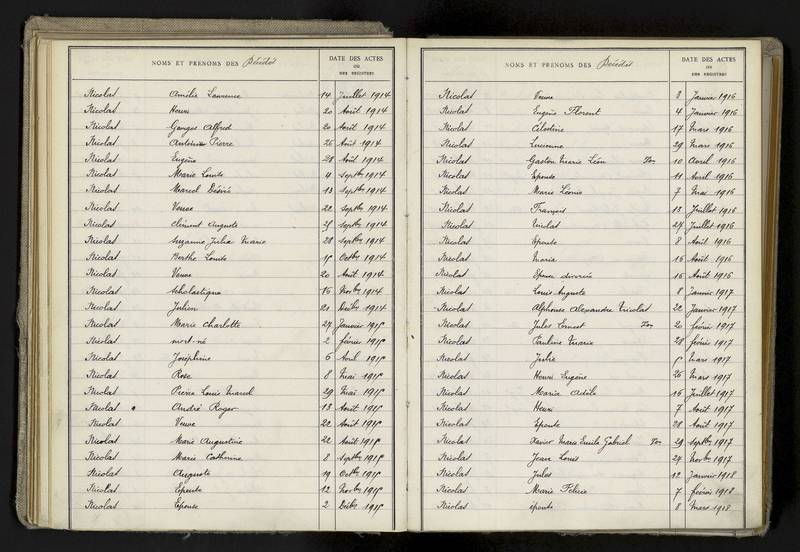 NOMS ET PRENOMS DES Décédés DATE DES ACTES OU DES REGISTRES
Nicolas Amélie Laurence 14 Juillet 1914
Nicolas Henri 20 Août 1914
Nicolas Georges Alfred 20 Août 1914
Nicolas Antoine Pierre 26 Août 1914
Nicolas Eugène 28 Août 1914
Nicolas Marie Louise 4 Septbre 1914
Nicolas Marcel Désiré 13 Septbre 1914
Nicolas Veuve 22 Septbre 1914
Nicolas Clément Auguste 25 Septbre 1914
Nicolas Suzanne Julia Marie 28 Septbre 1914
Nicolas Berthe Louise 15 Octbre 1914
Nicolas Veuve 20 Août 1914
Nicolas Scholastique 16 Novbre 1914
Nicolas Julien 21 Décbre 1914
Nicolas Marie Charlotte 27 Janvier 1915
Nicolas mort-né 2 février 1915
Nicolas Joséphine 6 Avril 1915
Nicolas Rose 8 Mai 1915
Nicolas Pierre Louis Marcel 29 Mai 1915
Nicolas André Roger 13 Août 1915
Nicolas Veuve 22 Août 1915
Nicolas Marie Augustine 22 Août 1915
Nicolas Marie Catherine 8 Septbre 1915
Nicolas Auguste 19 Octbre 1915
Nicolas Epouse 12 Novbre 1915
Nicolas Epouse 2 Décbre 1915
NOMS ET PRENOMS DES Décédés DATE DES ACTES OU DES REGISTRES
Nicolas Veuve 3 Janvier 1916
Nicolas Eugène Florent 4 Janvier 1916
Nicolas Célestine 17 Mars 1916
Nicolas Lucienne 29 Mars 1916
Nicolas Gaston Marie Léon 10 Avril 1916
Nicolas Epouse 11 Avril 1916
Nicolas Marie Léonie 7 Mai 1916
Nicolas François 13 Juillet 1916
Nicolas Nicolas 27 Juillet 1916
Nicolas Epouse 8 Août 1916
Nicolas Maria 16 Août 1916
Nicolas Epouse divorcée 16 Août 1916
Nicolas Louis Auguste 8 Janvier 1917
Nicolas Alphonse Alexandre Nicolas 22 Janvier 1917
Nicolas Jules Ernest 20 février 1917
Nicolas Pauline Marie 28 février 1917
Nicolas Julie 5 Mars 1917
Nicolas Henri Eugène 26 Mars 1917
Nicolas Maria Adèle 16 Juillet 1917
Nicolas Henri 7 Août 1917
Nicolas Epouse 28 Août 1917
Nicolas Xavier Marie Emile Gabriel 29 Septbre 1917
Nicolas Jean Louis 27 Novbre 1917
Nicolas Jules 12 Janvier 1918
Nicolas Marie Félicie 7 février 1918
Nicolas épouse 8 Mars 1918